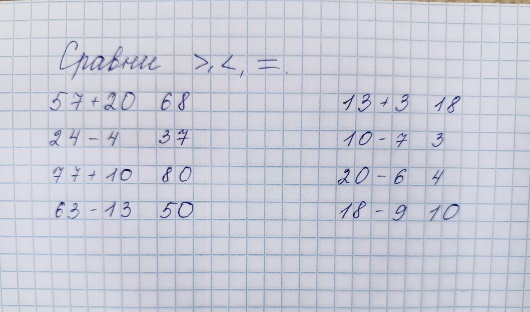 Сравни >, <, =.
57+20 68
24-4 37
77+10 80
63-13 50
13+3 18
10-7 3
20-6 4
18-9 10